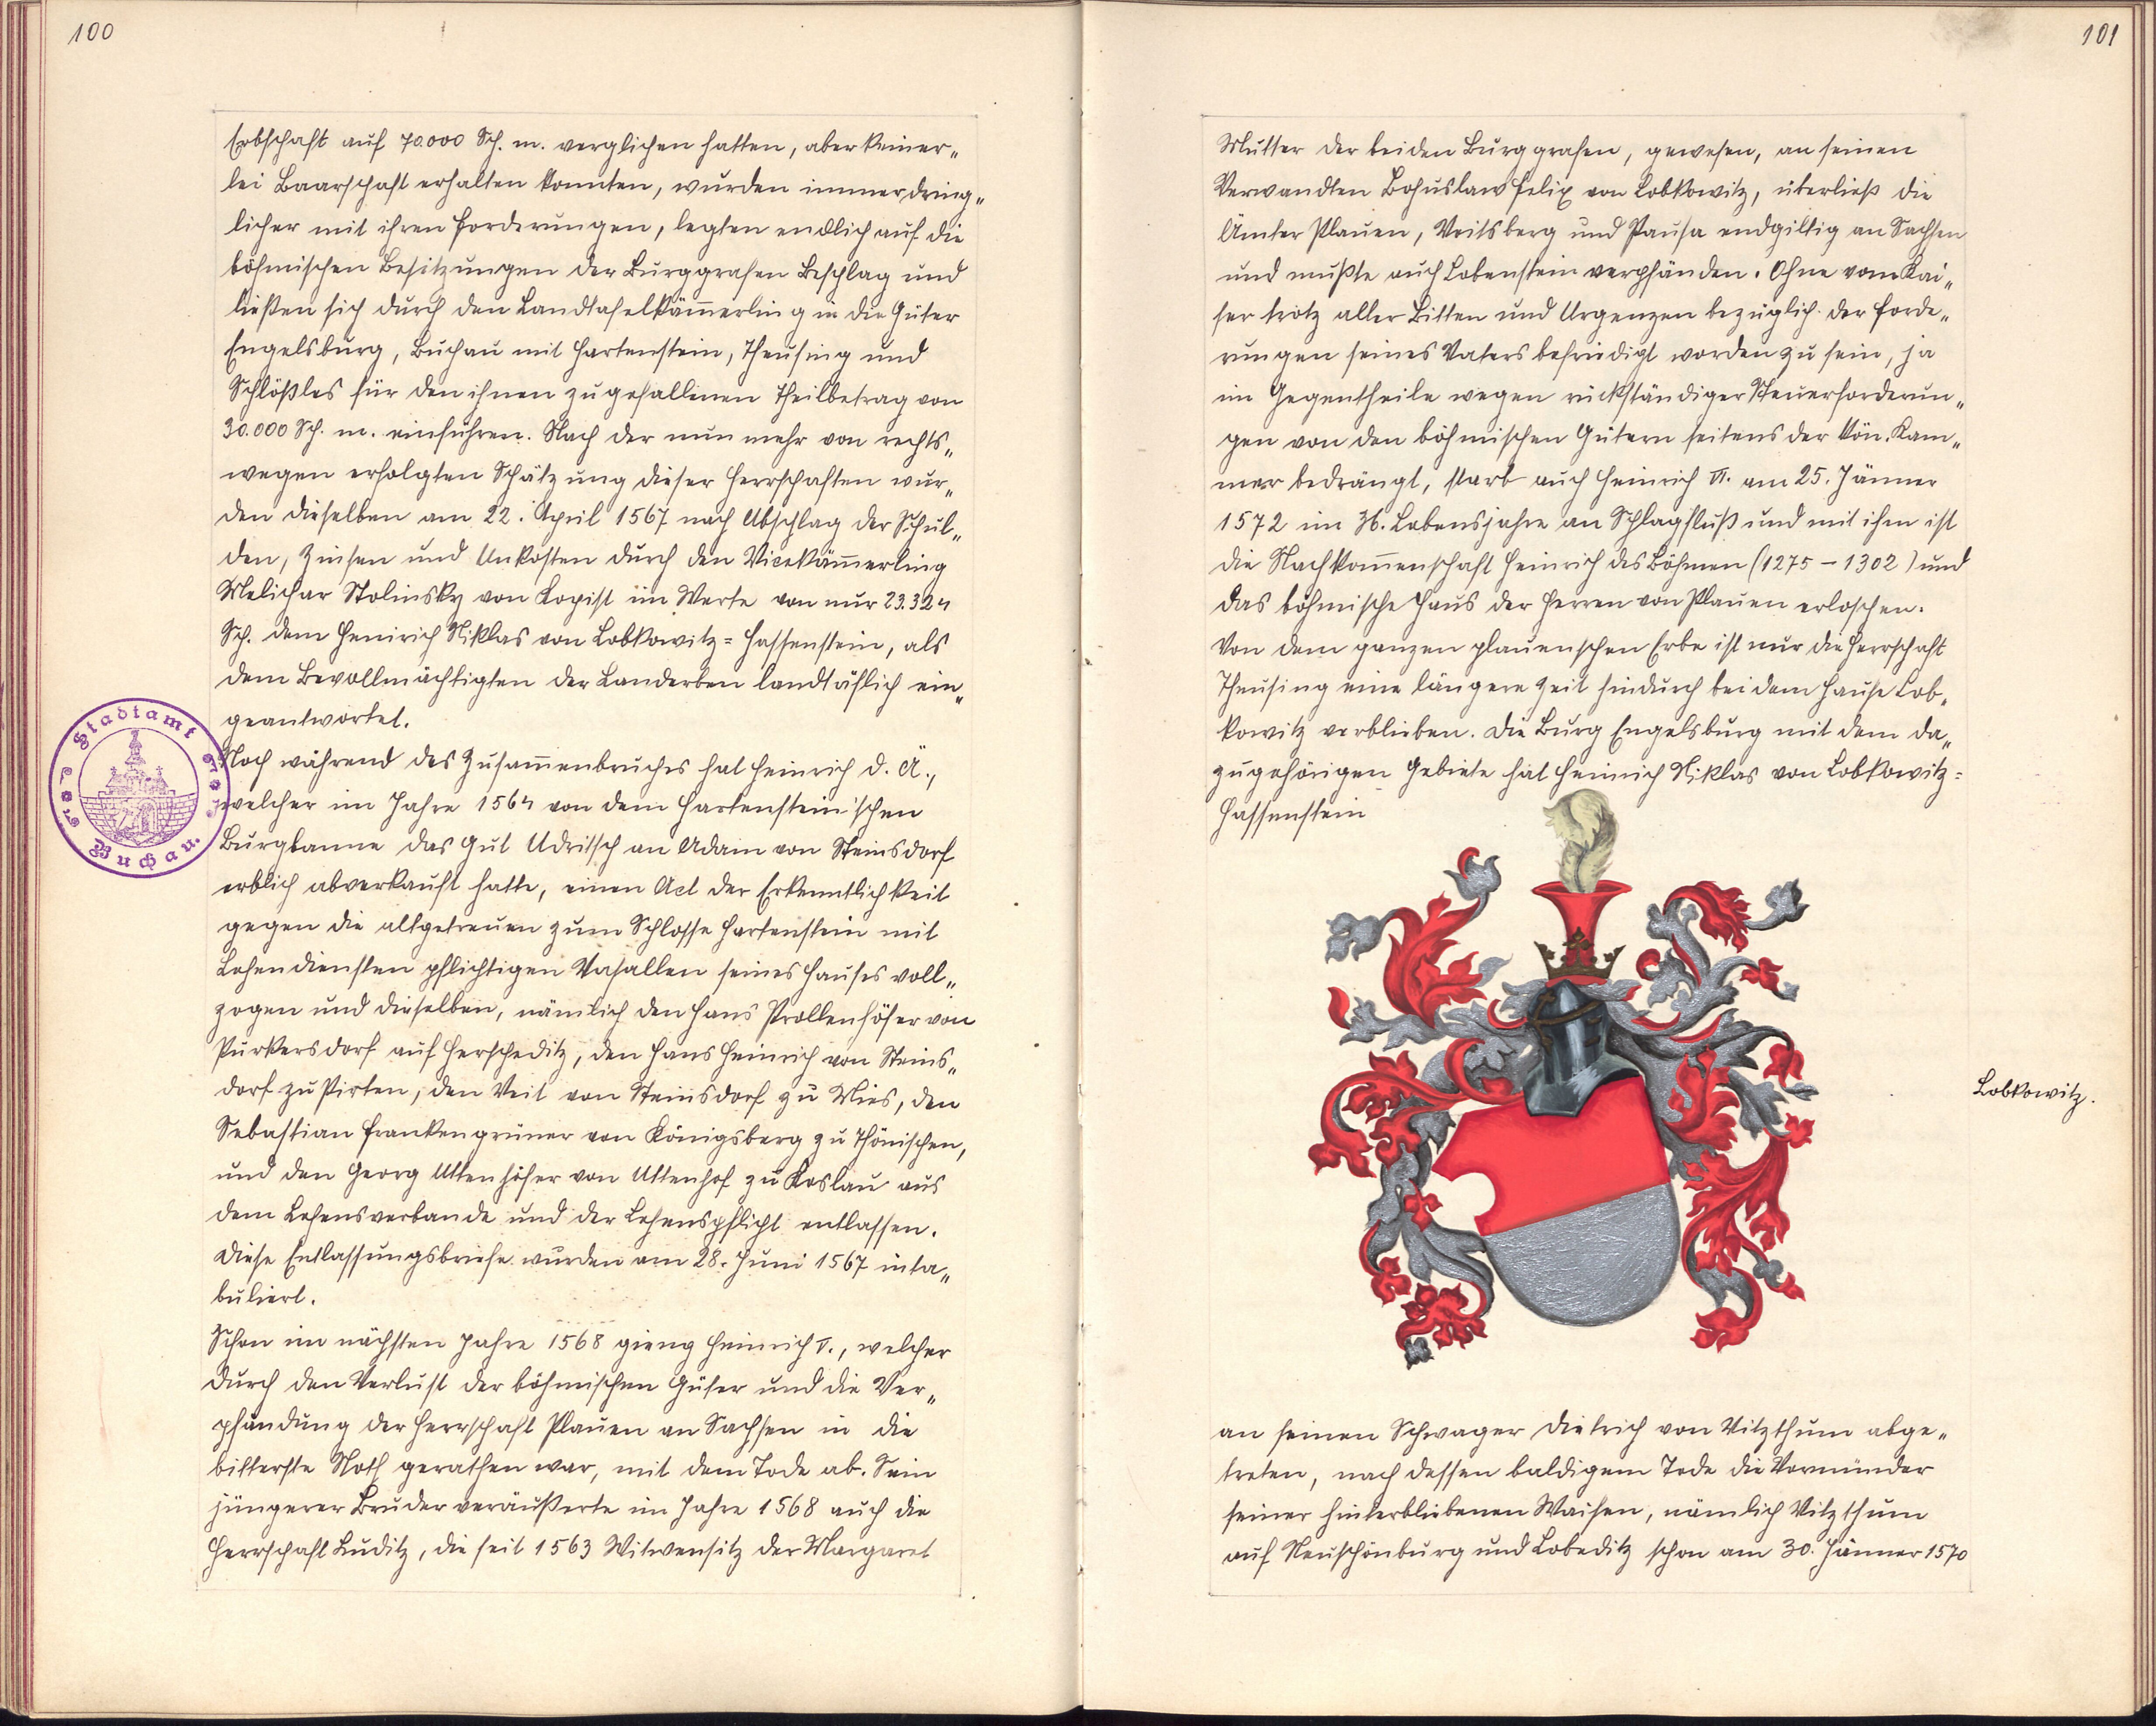 100
Erbschaft auf 70.000 Sch. m. verglichen hatten, aber keiner„
lei Baarschaft erhalten konnten, wurden immer dring„
licher mit ihren Forderungen, legten endlich auf die
böhmischen Besitzungen der Burggrafen Beschlag und
ließen sich durch den Landtafelkäm̄erling in die Güter
Engelsburg, Buchau mit Hartenstein, Theusing und
Schlößles für den ihnen zugefallenen Theilbetrag von
30.000 Sch. m. einführen. Nach der nun mehr von rechts„
wegen erfolgten Schätzung dieser Herrschaften wur„
den dieselben am 22. April 1567 nach Abschlag der Schul„
den, Zinsen und Unkosten durch den Vicekäm̄erling
Melichar Stolinsky von Kopist im Werte von nur 23.324
Sch. dem Heinrich Niklas von Lobkowitz=Hassenstein, als
dem Bevollmächtigten der Landerben landtäflich ein„
geantwortet.
Noch während des Zusam̄enbruches hat Heinrich d. Ä.,
welcher im Jahre 1564 von dem Hartenstein'schen
Burgbanne das Gut Udritsch an Adam von Steinsdorf
erblich abverkauft hatte, einen Act der Erkenntlichkeit
gegen die altgetreuen zum Schlosse Hartenstein mit
Lehendiensten pflichtigen Vasallen seines Hauses voll„
zogen und dieselben, nämlich den Hans Prollenhöfer von
Purkersdorf auf Herscheditz, den Hans Heinrich von Steins„
dorf zu Pirten, den Veit von Steinsdorf zu Mies, den
Sebastian Frankengrüner von Königsberg zu Thönischen,
und den Georg Uttenhöfer von Uttenhof zu Koslau aus
dem Lehensverbande und der Lehenspflicht entlassen.
Diese Entlassungsbriefe wurden am 28. Juni 1567 inta„
buliert.
Schon im nächsten Jahre 1568 gieng Heinrich V., welcher
durch den Verlust der böhmischen Güter und die Ver„
pfändung der Herrschaft Plauen an Sachsen in die
bitterste Noth gerathen war, mit dem Tode ab. Sein
jüngerer Bruder veräußerte im Jahre 1568 auch die
Herrschaft Luditz, die seit 1563 Witwensitz der Margaret
Stadtamt
Buchau.
101
Mutter der beiden Burggrafen, gewesen, an seinen
Verwandten Bohuslaw Felix von Lobkowitz, überließ die
Ämter Plauen, Voitsberg und Pausa endgiltig an Sachsen
und mußte auch Lobenstein verpfänden. Ohne vom Kai„
ser trotz aller Bitten und Urgenzen bezüglich der Forde„
rungen seines Vaters befriedigt worden zu sein, ja
im Gegentheile wegen rückständiger Steuerforderun„
gen von den böhmischen Gütern seitens der kön. Kam„
mer bedrängt, starb auch Heinrich VI. am 25. Jänner
1572 im 36. Lebensjahre an Schlagfluß und mit ihm ist
die Nachkom̄enschaft Heinrich des Böhmen (1275 – 1302) und
das böhmische Haus der Herren von Plauen erloschen.
Von dem ganzen plauenschen Erbe ist nur die Herrschaft
Theusing eine längere Zeit hindurch bei dem Hause Lob„
kowitz verblieben. Die Burg Engelsburg mit dem da„
zugehörigen Gebiete hat Heinrich Niklas von Lobkowitz=
Hassenstein
Lobkowitz.
an seinen Schwager Dietrich von Vitzthum abge„
treten, nach dessen baldigem Tode die Vormünder
seiner hinterbliebenen Waisen, nämlich Vitzthum
auf Neuschönburg und Lobeditz schon am 30. Jänner 1570